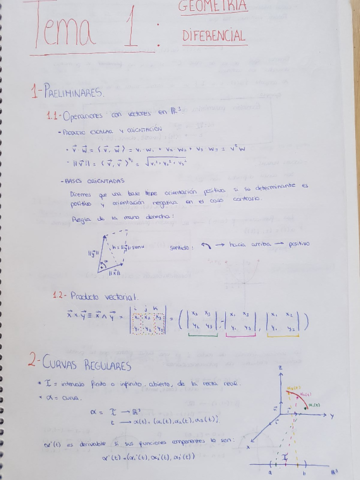 Tema 1: GEOMETRIA
DIFERENCIAL
1-PRELIMINARES
1.1-Operaciones con vectores en ℝ³
-PRODUCTO ESCALAR Y
· v⃗ · w⃗ = (v⃗, w⃗) = v₁ w₁ + v₂ w₂ + v₃ w₃ = vᵗ w
· ||v⃗|| = (v⃗, v⃗)^½ = √v₁² + v₂² + v₃²
-BASES ORIENTADAS
Diremos que una base tiene orientación positiva si su determinante es
positivo y orientación negativa en el caso contrario.
Regla de la mano derecha:
Sentido: → hacia arriba → positivo
1.2- Producto vectorial
x⃗ × y⃗ ≡ x⃗ ∧ y⃗ = | i j k x₁ x₂ x₃ y₁ y₂ y₃ | = ( | x₂ x₃ y₂ y₃ |, - | x₁ x₃ y₁ y₃ |, | x₁ x₂ y₁ y₂ | )
2-CURVAS REGULARES
· I = intervalo finito o infinito, abierto, de la recta real.
· α = curva.
α = I → ℝ³
t → α(t) = (α₁(t), α₂(t), α₃(t))
α(t) es derivable si sus funciones componentes lo son:
α'(t) = (α₁'(t), α₂'(t), α₃'(t))